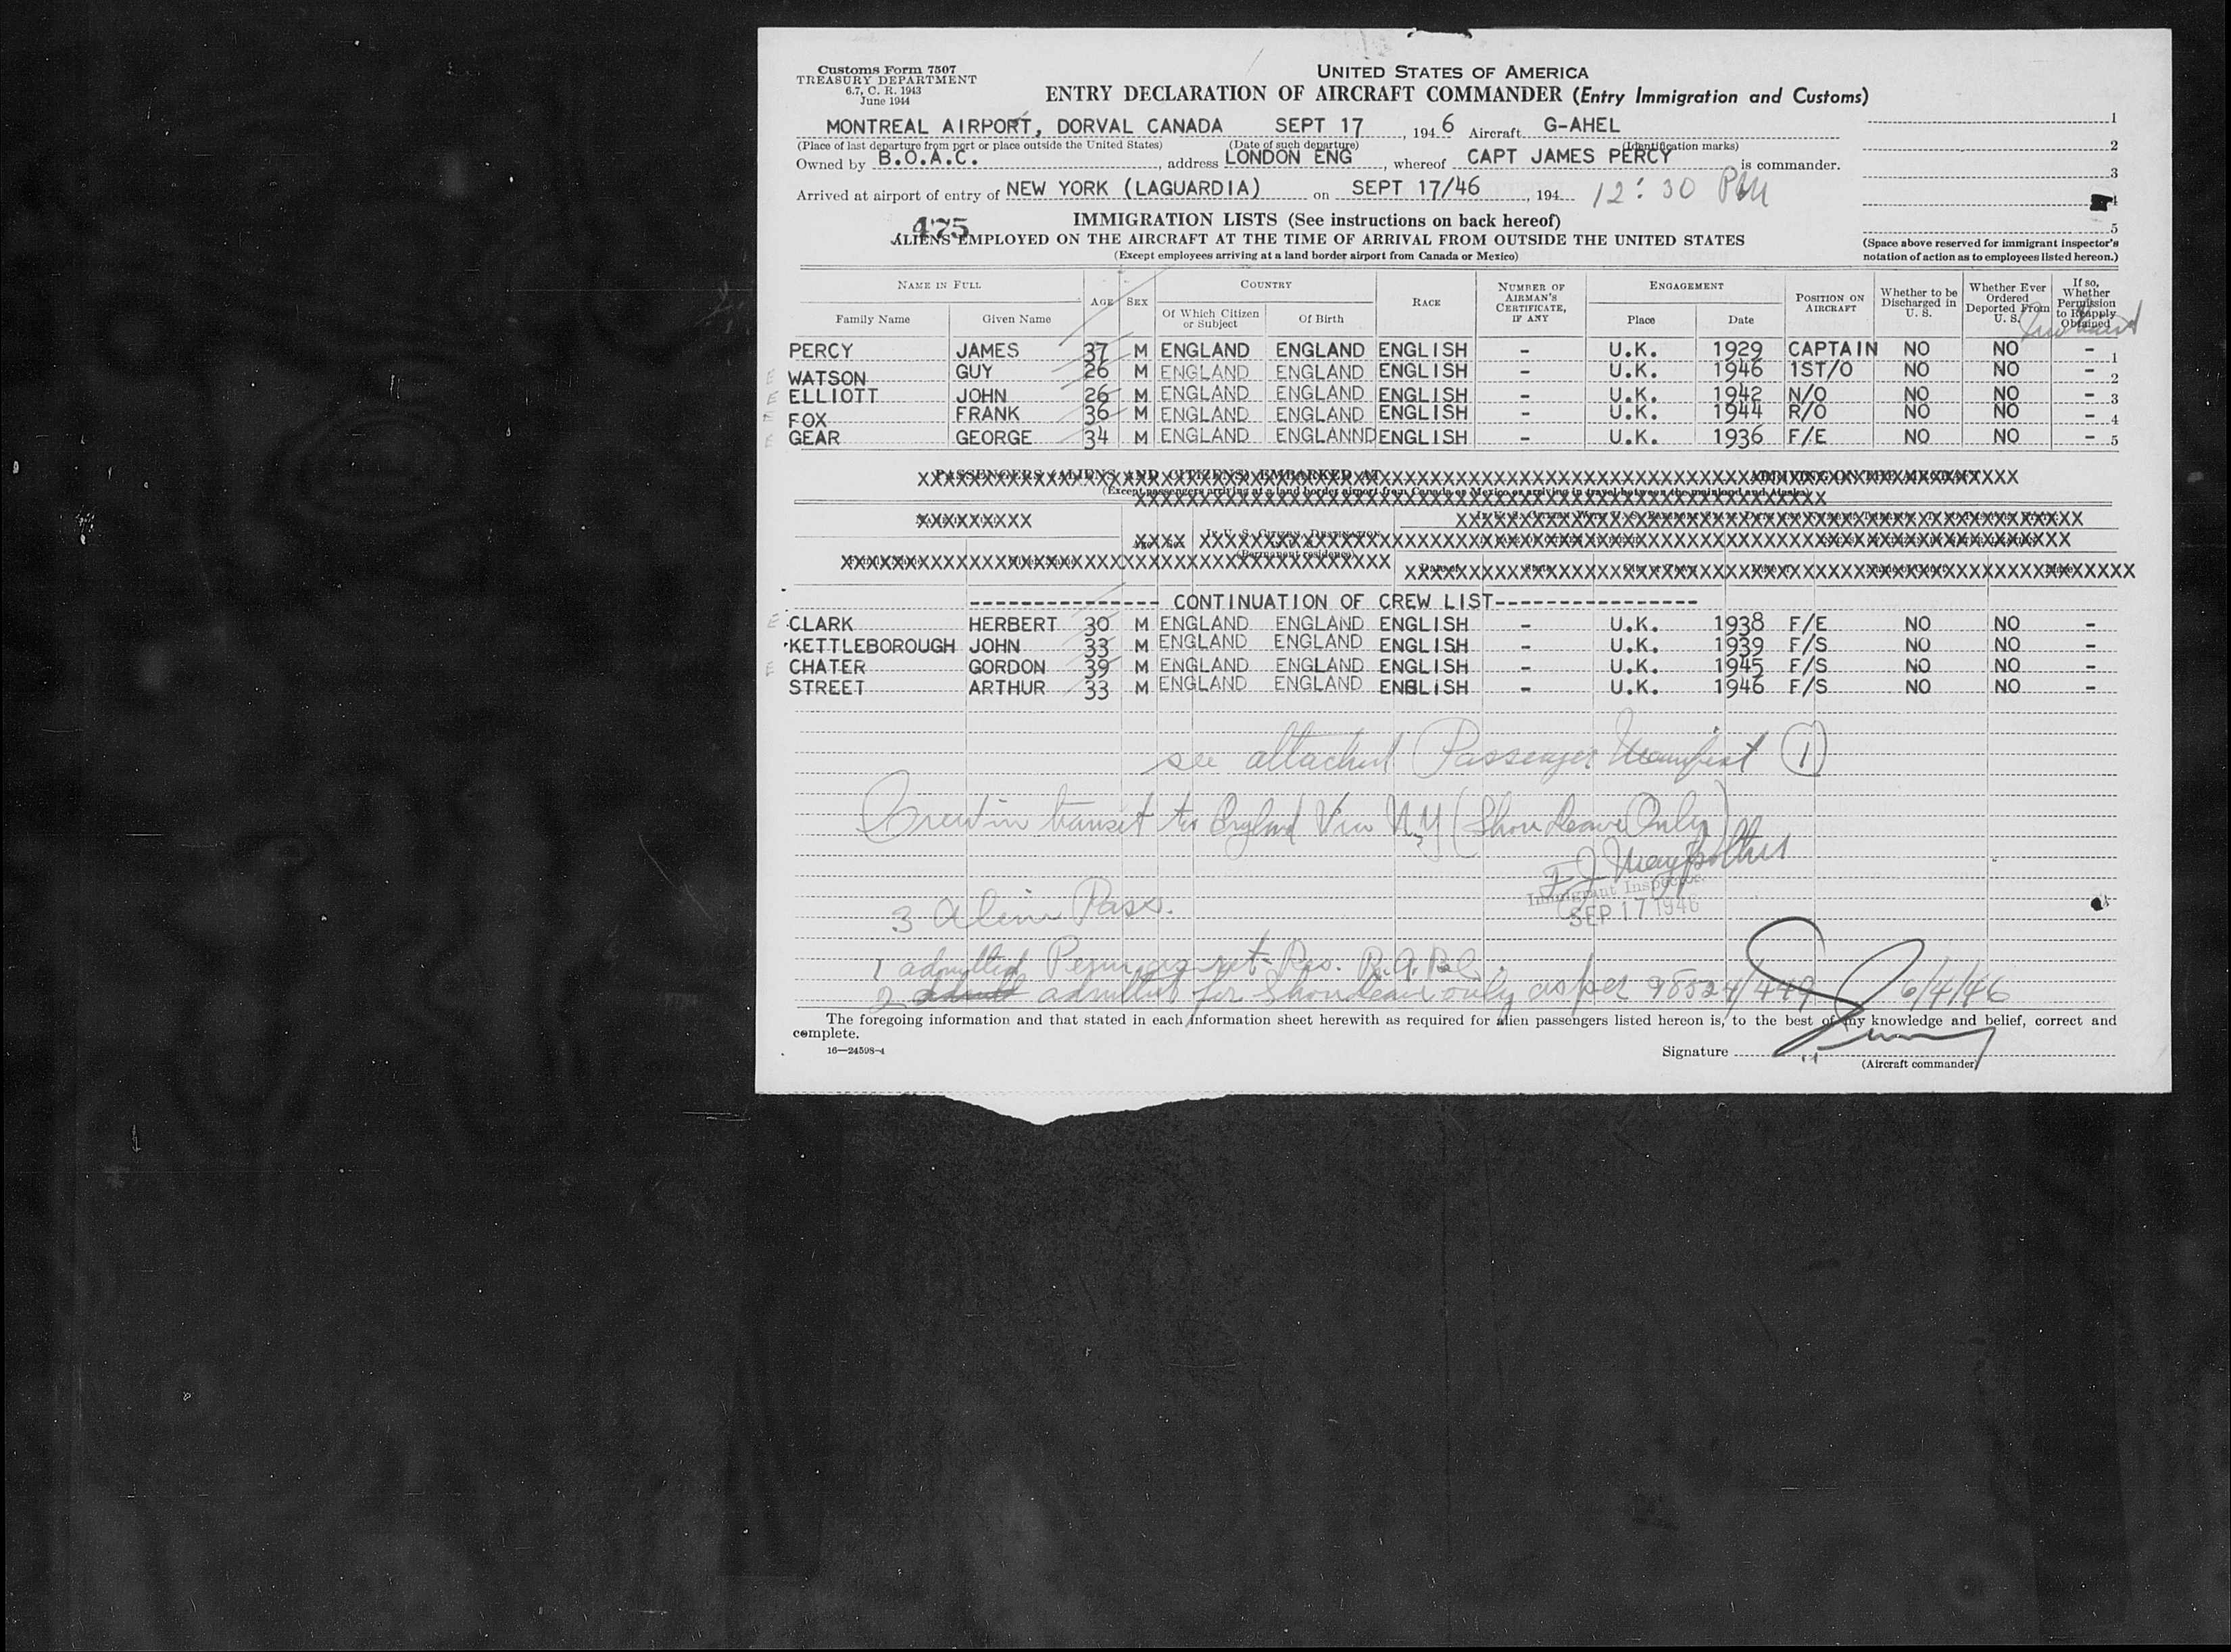 Customs Form 7507
TREASURY DEPARTMENT
6.7, C. R. 1943
June 1944
UNITED STATES OF AMERICA
ENTRY DECLARATION OF AIRCRAFT COMMANDER (Entry Immigration and Customs)
MONTREAL AIRPORT, DORVAL CANADA SEPT 17, 1946 Aircraft G-AHEL
(Place of last departure from port or place outside the United States) (Date of such departure) (Identification marks)
Owned by B.O.A.C., address LONDON ENG, whereof CAPT JAMES PERCY is commander.
Arrived at airport of entry of NEW YORK (LAGUARDIA) on SEPT 17/46, 194 12:30 PM
1
2
3
4
5
(Space above reserved for immigrant inspector's notation of action as to employees listed hereon.)
475
IMMIGRATION LISTS (See instructions on back hereof)
ALIENS EMPLOYED ON THE AIRCRAFT AT THE TIME OF ARRIVAL FROM OUTSIDE THE UNITED STATES
(Except employees arriving at a land border airport from Canada or Mexico)
NAME IN FULL AGE SEX COUNTRY RACE NUMBER OF AIRMAN'S CERTIFICATE, IF ANY ENGAGEMENT POSITION ON AIRCRAFT Whether to be Discharged in U. S. Whether Ever Ordered Deported From U. S. If so, Whether Permission to Reapply Obtained
Family Name Given Name Of Which Citizen or Subject Of Birth Place Date
PERCY JAMES 37 M ENGLAND ENGLAND ENGLISH - U.K. 1929 CAPTAIN NO NO - 1
WATSON GUY 26 M ENGLAND ENGLAND ENGLISH - U.K. 1946 1ST/O NO NO - 2
ELLIOTT JOHN 26 M ENGLAND ENGLAND ENGLISH - U.K. 1942 N/O NO NO - 3
FOX FRANK 36 M ENGLAND ENGLAND ENGLISH - U.K. 1944 R/O NO NO - 4
GEAR GEORGE 34 M ENGLAND ENGLANND ENGLISH - U.K. 1936 F/E NO NO - 5
--------------- CONTINUATION OF CREW LIST----------------
CLARK HERBERT 30 M ENGLAND ENGLAND ENGLISH - U.K. 1938 F/E NO NO -
KETTLEBOROUGH JOHN 33 M ENGLAND ENGLAND ENGLISH - U.K. 1939 F/S NO NO -
CHATER GORDON 39 M ENGLAND ENGLAND ENGLISH - U.K. 1945 F/S NO NO -
STREET ARTHUR 33 M ENGLAND ENGLAND ENGLISH - U.K. 1946 F/S NO NO -
see attached Passenger Manifest 1
Crew in transit to England Via N.Y (Shore Leave Only)
Immigrant Inspector
SEP 17 1946
3 Alien Pass.
1 admitted
2 admitted for Shore Leave only as per 6/4/46
The foregoing information and that stated in each information sheet herewith as required for alien passengers listed hereon is, to the best of my knowledge and belief, correct and
complete.
16—24598-4
Signature
(Aircraft commander)